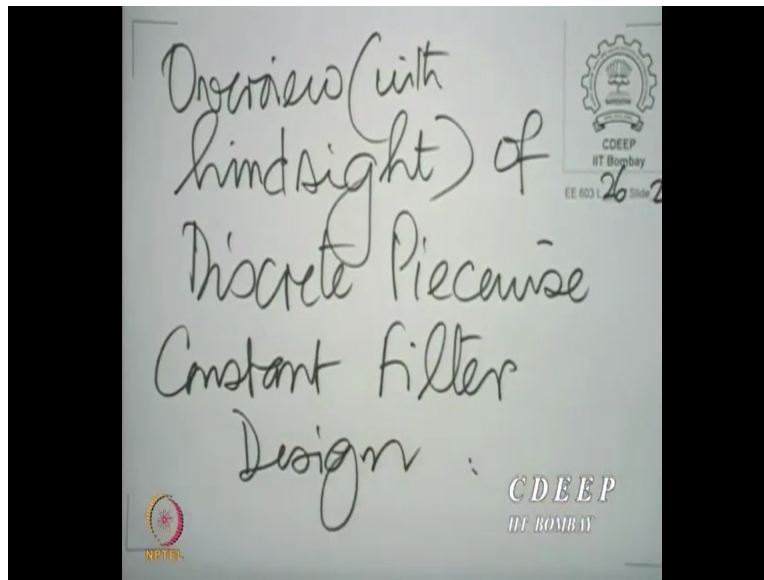 Overview (with
hindsight) of
Discrete Piecewise
Constant Filter
Design :
CDEEP
IIT Bombay
EE 603 L 26 Slide 2
CDEEP
IIT BOMBAY
NPTEL